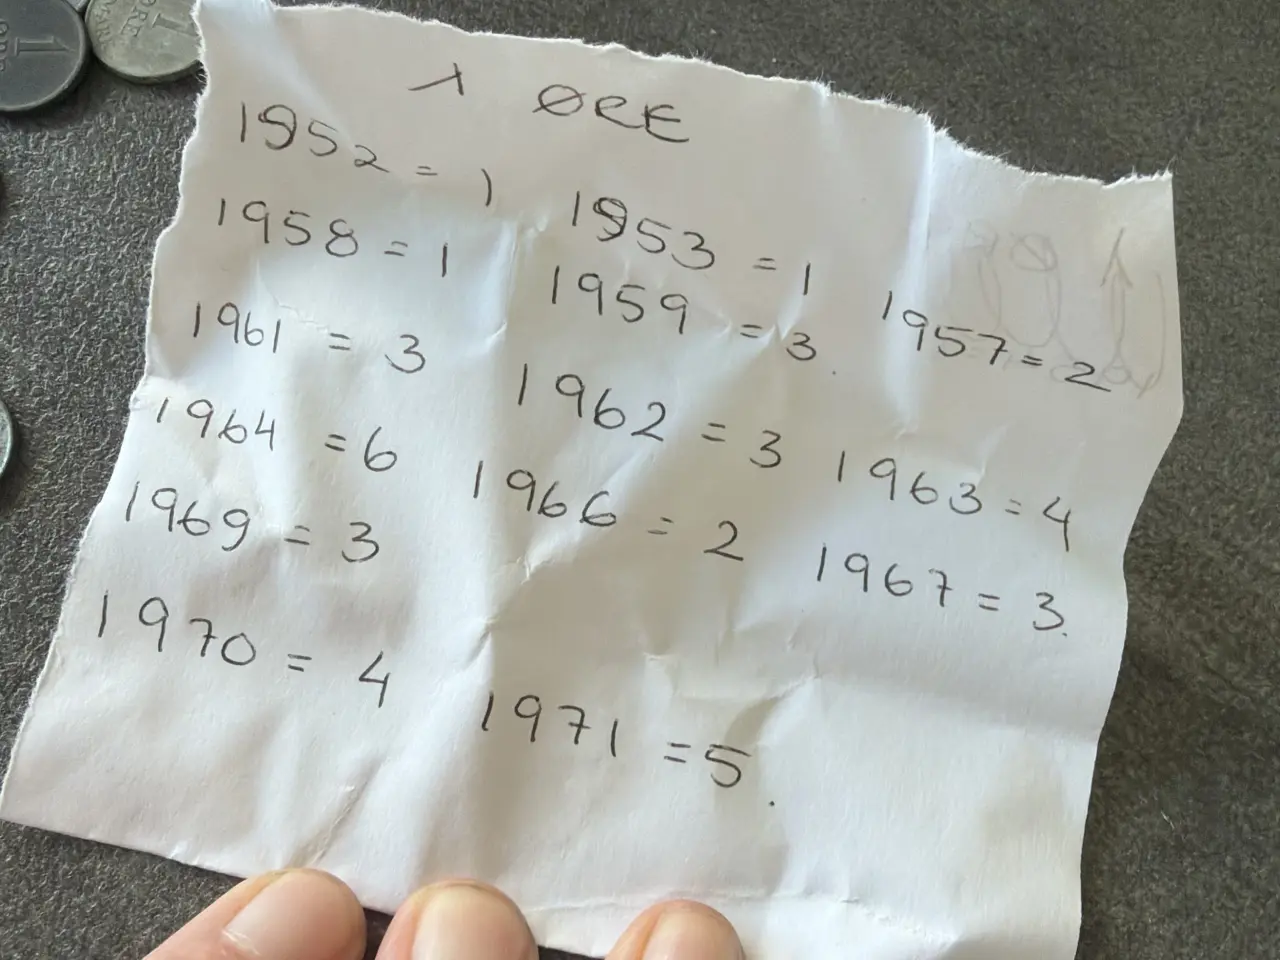 1 ØRE
1952 = 1
1953 = 1
1957 = 2
1958 = 1
1959 = 3.
1961 = 3
1962 = 3
1963 = 4
1964 = 6
1966 = 2
1967 = 3.
1969 = 3
1970 = 4
1971 = 5.
1
ØRE
1
ØRE